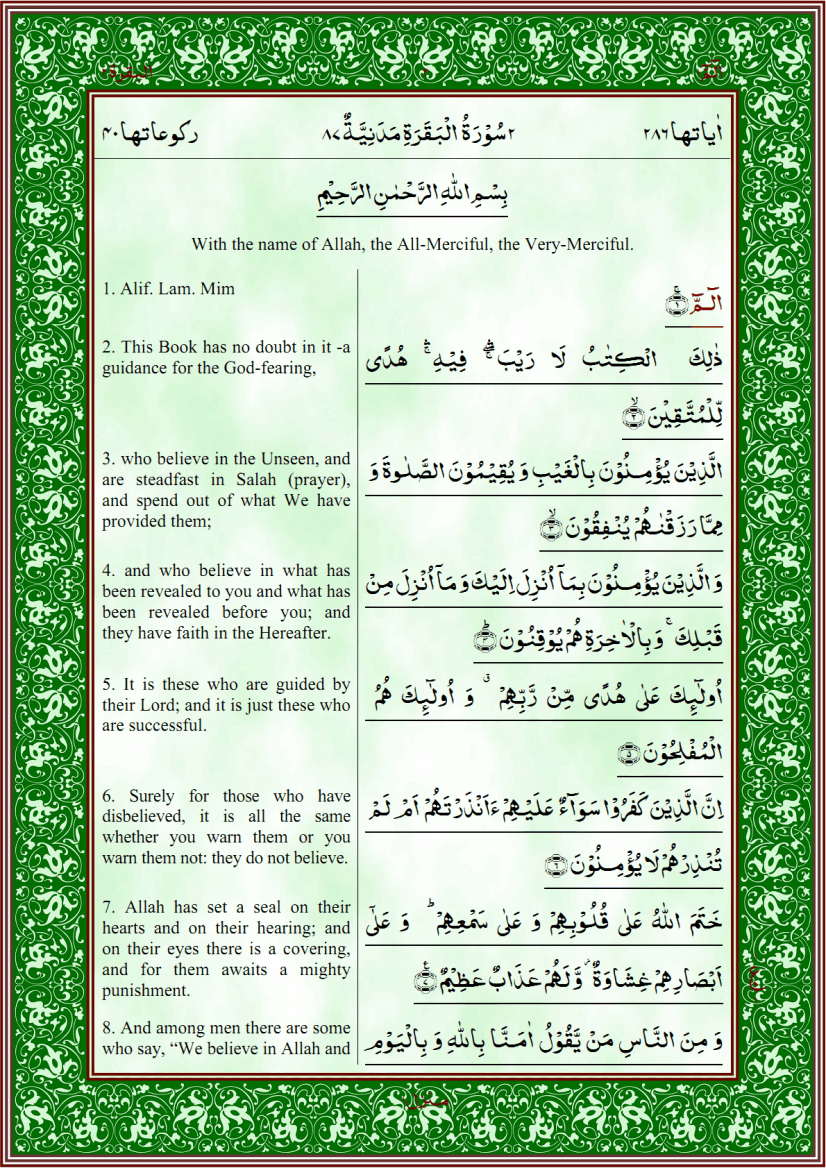 البقرة ۲
۲
الٓمّٓ ۱
اٰیاتها ۲۸۶
۲ سُوْرَةُ الْبَقَرَةِ مَدَنِیَّةٌ ۸۷
رکوعاتها ۴۰
بِسْمِ اللّٰهِ الرَّحْمٰنِ الرَّحِیْمِ
With the name of Allah, the All-Merciful, the Very-Merciful.
1. Alif. Lam. Mim
الٓمّٓ ۚ﴿۱﴾
2. This Book has no doubt in it -a
guidance for the God-fearing,
ذٰلِكَ الْكِتٰبُ لَا رَیْبَ ۛۖ فِیْهِ ۛۚ هُدًی
لِّلْمُتَّقِیْنَ ۙ﴿۲﴾
3. who believe in the Unseen, and
are steadfast in Salah (prayer),
and spend out of what We have
provided them;
الَّذِیْنَ یُؤْمِنُوْنَ بِالْغَیْبِ وَ یُقِیْمُوْنَ الصَّلٰوةَ وَ
مِمَّا رَزَقْنٰهُمْ یُنْفِقُوْنَ ۙ﴿۳﴾
4. and who believe in what has
been revealed to you and what has
been revealed before you; and
they have faith in the Hereafter.
وَ الَّذِیْنَ یُؤْمِنُوْنَ بِمَاۤ اُنْزِلَ اِلَیْكَ وَ مَاۤ اُنْزِلَ مِنْ
قَبْلِكَ ۚ وَ بِالْاٰخِرَةِ هُمْ یُوْقِنُوْنَ ؕ﴿۴﴾
5. It is these who are guided by
their Lord; and it is just these who
are successful.
اُولٰٓئِكَ عَلٰی هُدًی مِّنْ رَّبِّهِمْ ۗ وَ اُولٰٓئِكَ هُمُ
الْمُفْلِحُوْنَ ﴿۵﴾
6. Surely for those who have
disbelieved, it is all the same
whether you warn them or you
warn them not: they do not believe.
اِنَّ الَّذِیْنَ كَفَرُوْا سَوَآءٌ عَلَیْهِمْ ءَاَنْذَرْتَهُمْ اَمْ لَمْ
تُنْذِرْهُمْ لَا یُؤْمِنُوْنَ ﴿۶﴾
7. Allah has set a seal on their
hearts and on their hearing; and
on their eyes there is a covering,
and for them awaits a mighty
punishment.
خَتَمَ اللّٰهُ عَلٰی قُلُوْبِهِمْ وَ عَلٰی سَمْعِهِمْ ؕ وَ عَلٰۤی
اَبْصَارِهِمْ غِشَاوَةٌ ۫ وَّ لَهُمْ عَذَابٌ عَظِیْمٌ ﴿۷﴾
8. And among men there are some
who say, “We believe in Allah and
وَ مِنَ النَّاسِ مَنْ یَّقُوْلُ اٰمَنَّا بِاللّٰهِ وَ بِالْیَوْمِ
منزل ۱